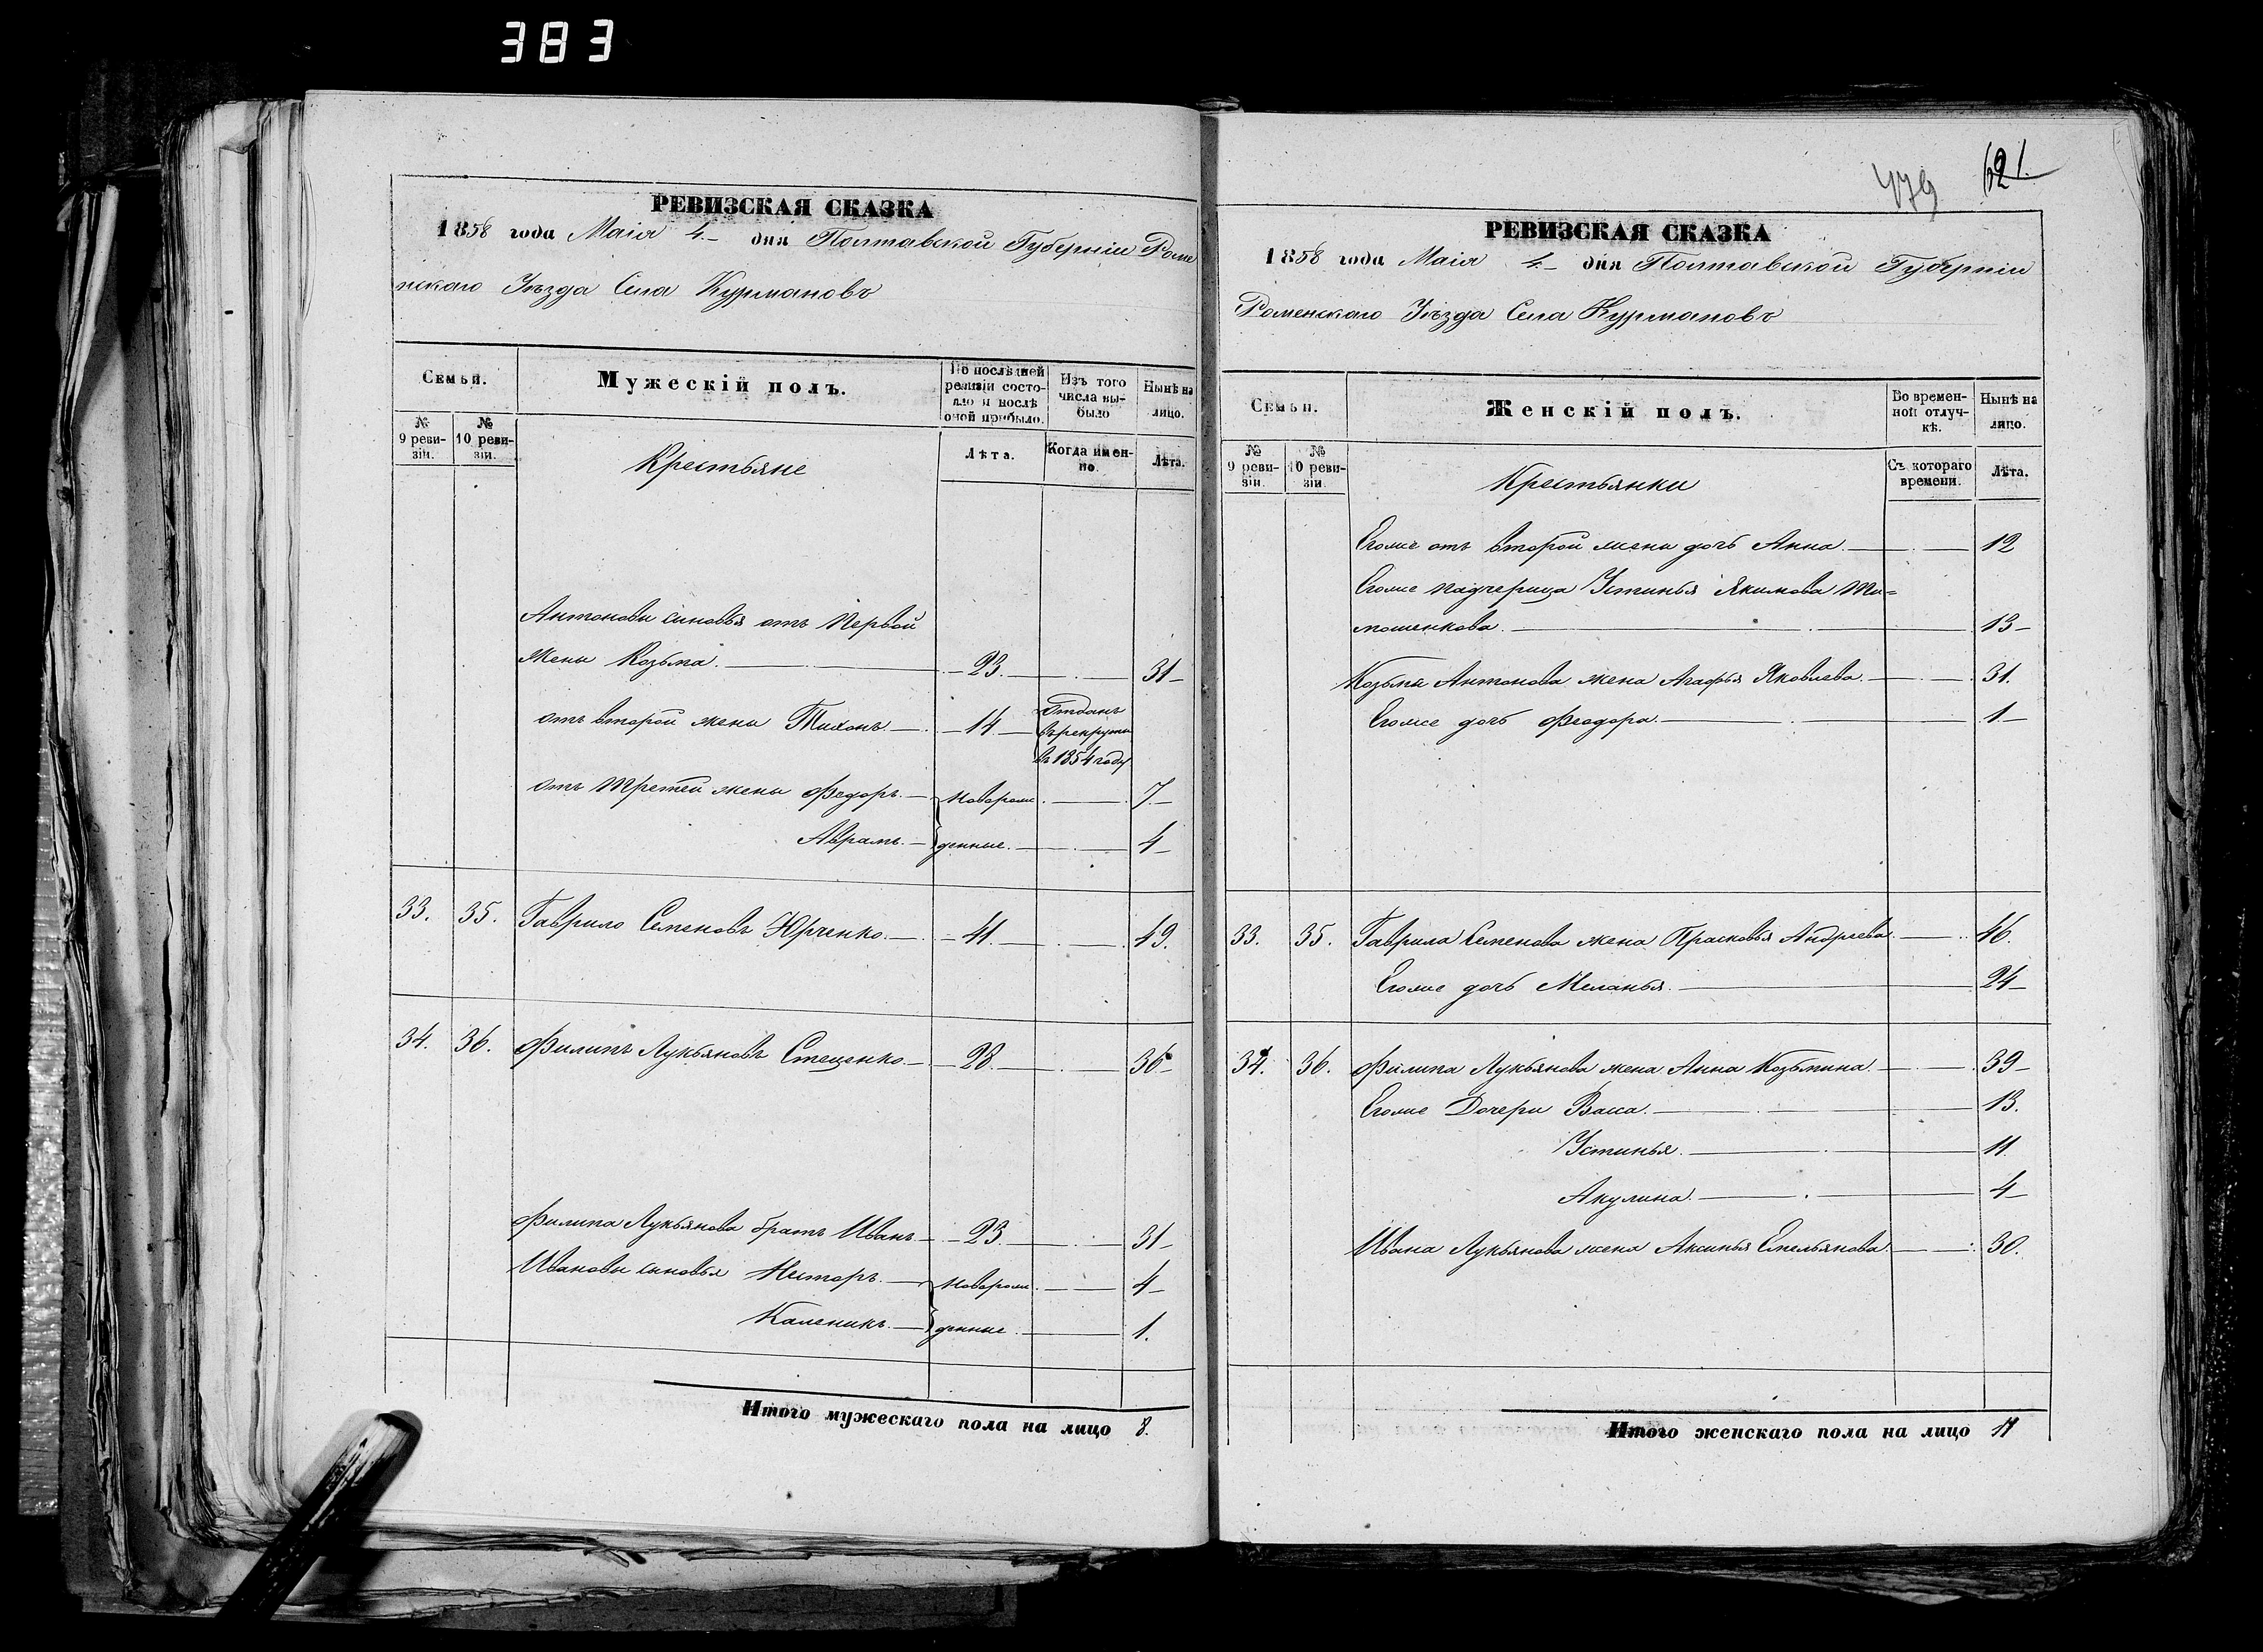 383
РЕВИЗСКАЯ СКАЗКА
1858 года Маія 4 дня Полтавской Губерніи Роме
нскаго Уѣзда Села Курмановъ
Семьи.
Мужескій полъ.
По послѣдней ревизіи состояло и послѣ оной прибыло.
Изъ того числа выбыло
Нынѣ на лицо.
№ 9 ревизіи.
№ 10 ревизіи.
Крестьяне
Лѣта.
Когда именно.
Лѣта.
Антоновы сыновья отъ первой
жены Козьма. 23. 31
отъ второй жены Тихонъ 14 Отданъ въ рекруты въ 1854 году
отъ третей жены Федоръ. новорож 7
Аврамъ. денные. 4
33. 35. Гаврило Семеновъ Юрченко. 41. 49.
34. 36. Филипъ Лукьяновъ Стеценко. 28. 36
Филипа Лукьянова братъ Иванъ 23. 31
Ивановы сыновья Несторъ. новорож. 4
Каленикъ. денные. 1.
Итого мужескаго пола на лицо 8.
479 621.
РЕВИЗСКАЯ СКАЗКА
1858 года Маія 4 дня Полтавской Губерніи
Роменскаго Уѣзда Села Курмановъ
Семьи.
Женскій полъ.
Во временной отлучкѣ.
Нынѣ на лицо.
№ 9 ревизіи.
№ 10 ревизіи.
Крестьянки
Съ котораго времени.
Лѣта.
Егоже отъ второй жены дочь Анна. 12
Егоже падчерица Устинья Якимова Ти=
мошенкова. 13
Козьмы Антонова жена Агафья Яковлева. 31.
Егоже дочь Феодора. 1.
33. 35. Гаврила Семенова жена Прасковья Андреева 46.
Егоже дочь Меланья. 24
34. 36. Филипа Лукьянова жена Анна Козьмина. 39
Егоже Дочери Васса. 13.
Устинья. 11
Акулина. 4
Ивана Лукьянова жена Аксинья Емельянова. 30.
Итого женскаго пола на лицо 11